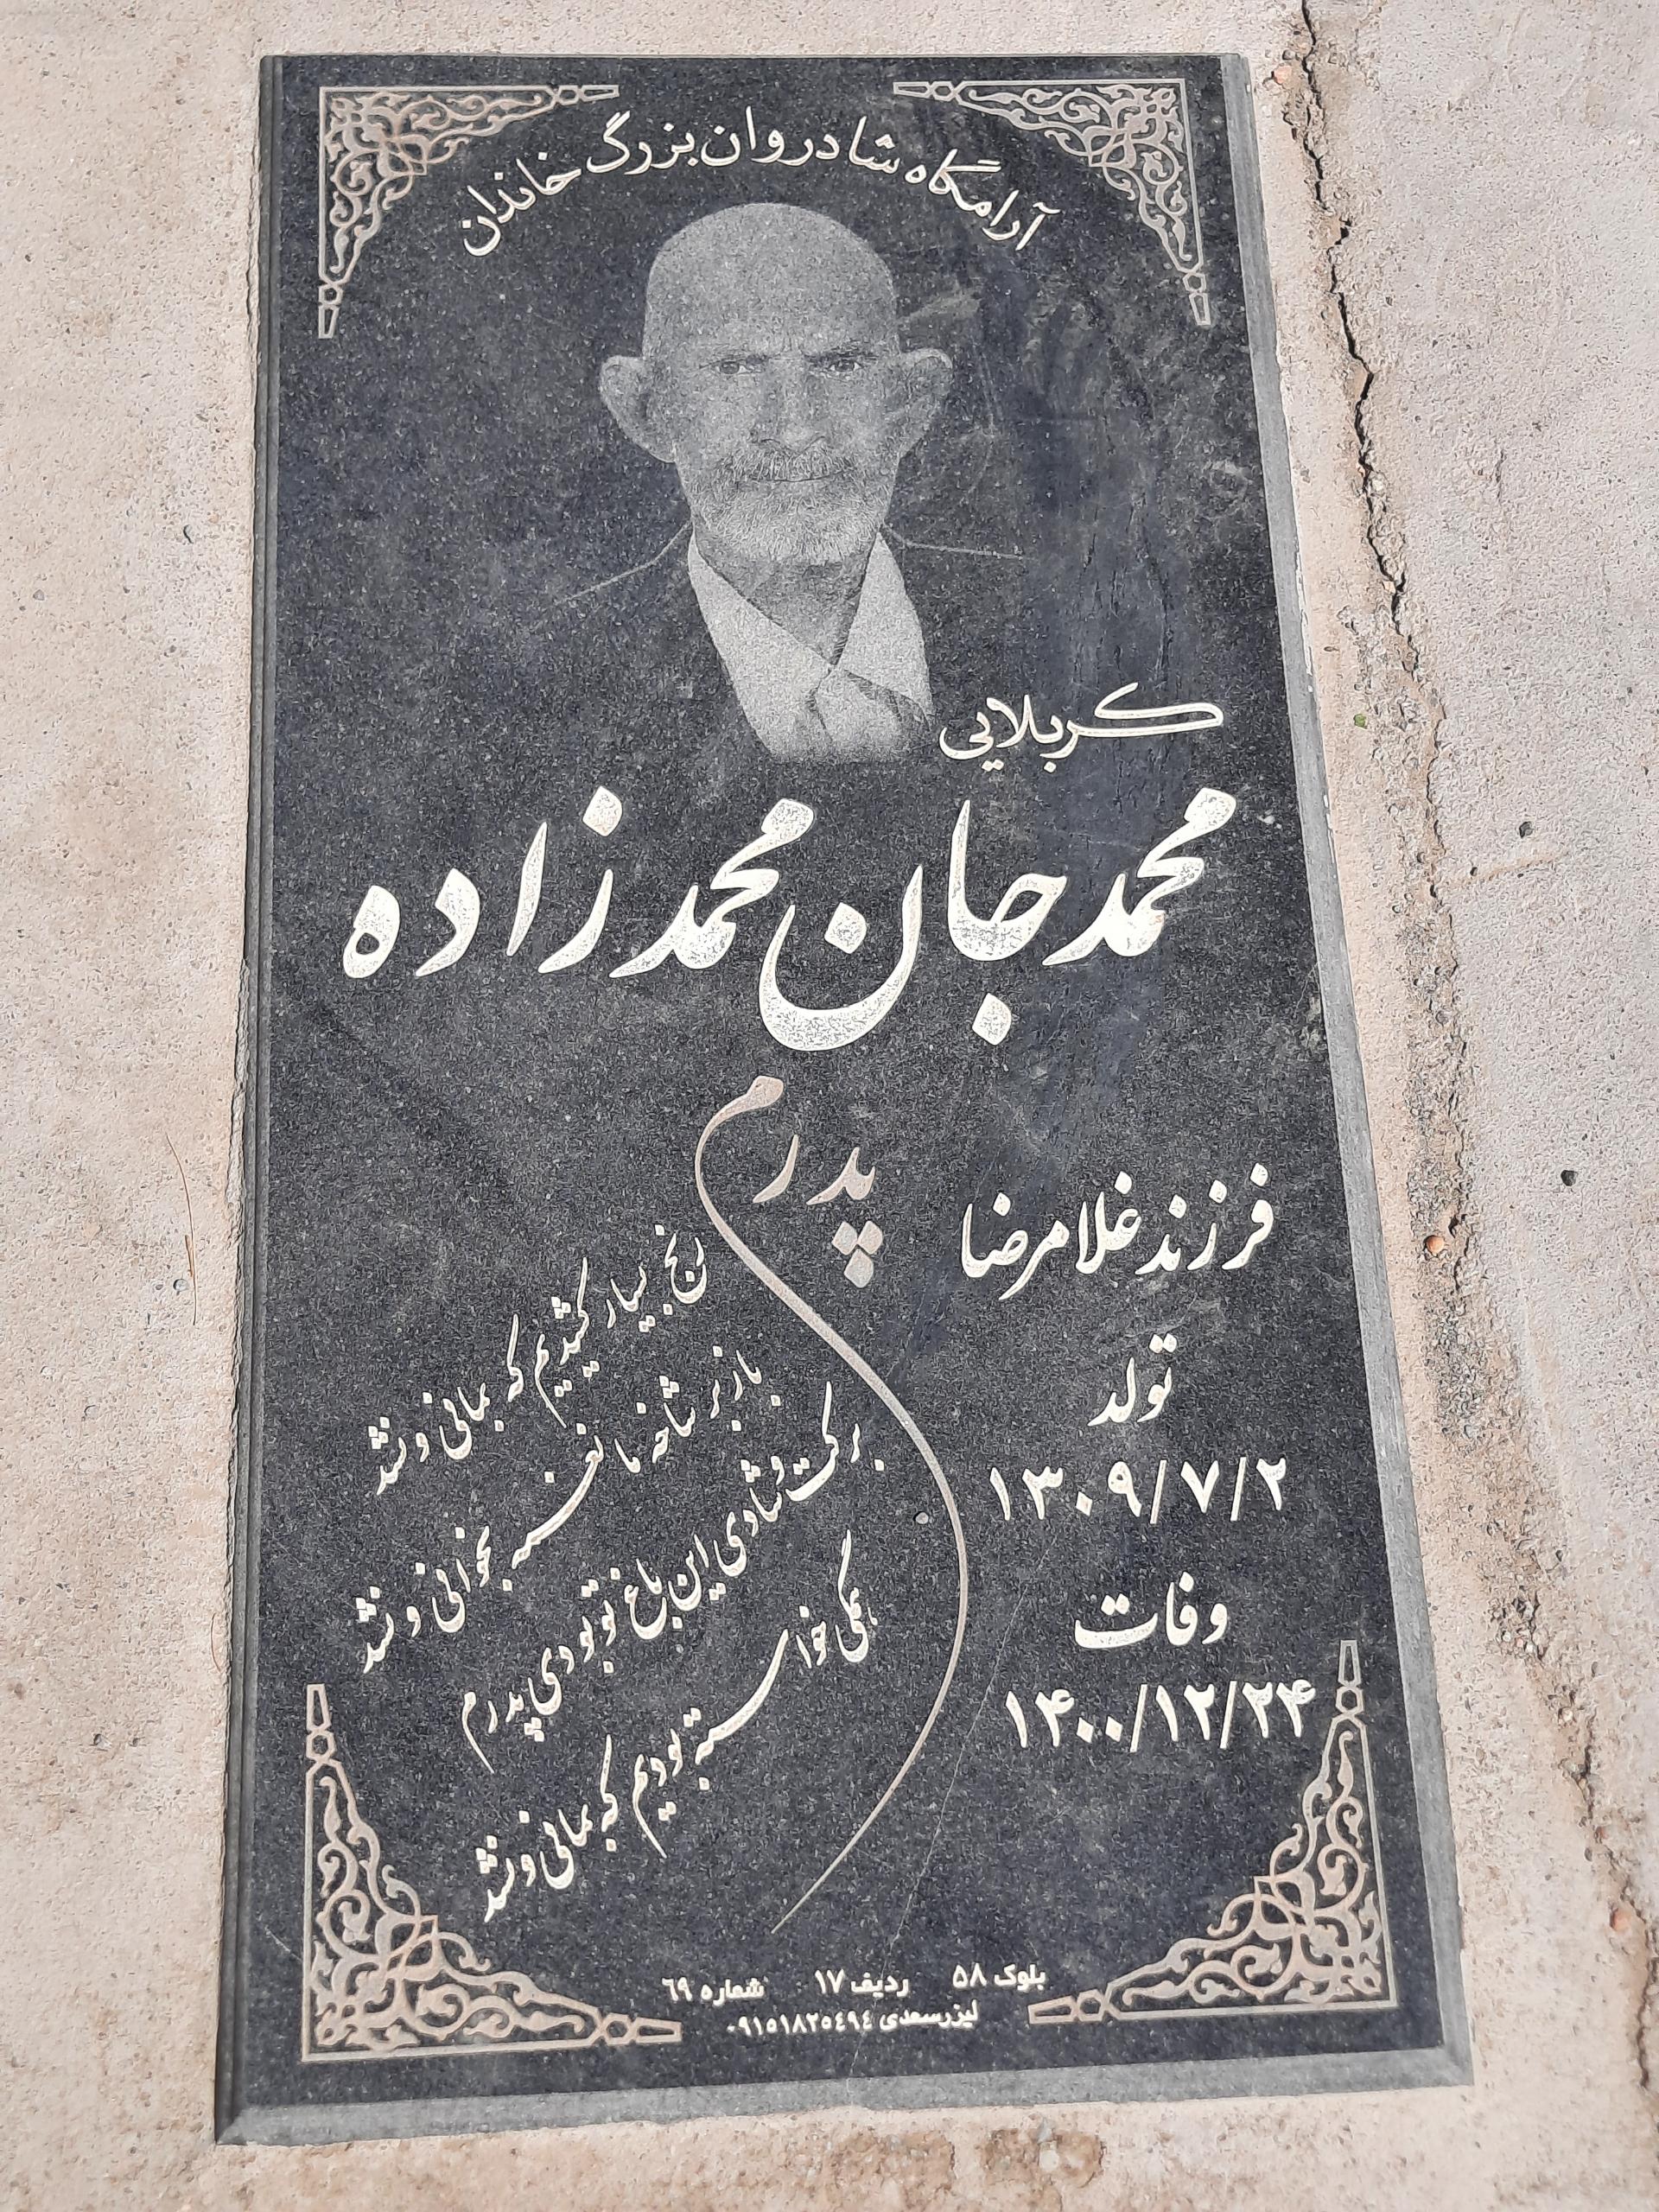 آرامگاه شادروان بزرگ خاندان
کربلایی
محمدجان محمدزاده
فرزند غلامرضا
تولد
۱۳۰۹/۷/۲
وفات
۱۴۰۰/۱۲/۲۴
پدرم
رنج بسیار کشیدیم که بمانی و نشد
باز بر شاخه ما نغمه بخوانی و نشد
برکت و شادی این باغ تو بودی پدرم
همگی خواسته بودیم که بمانی و نشد
بلوک ۵۸ ردیف ۱۷ شماره ۶۹
لیزر سعدی ۰۹۱۵۱۸۲۵٤۹٤